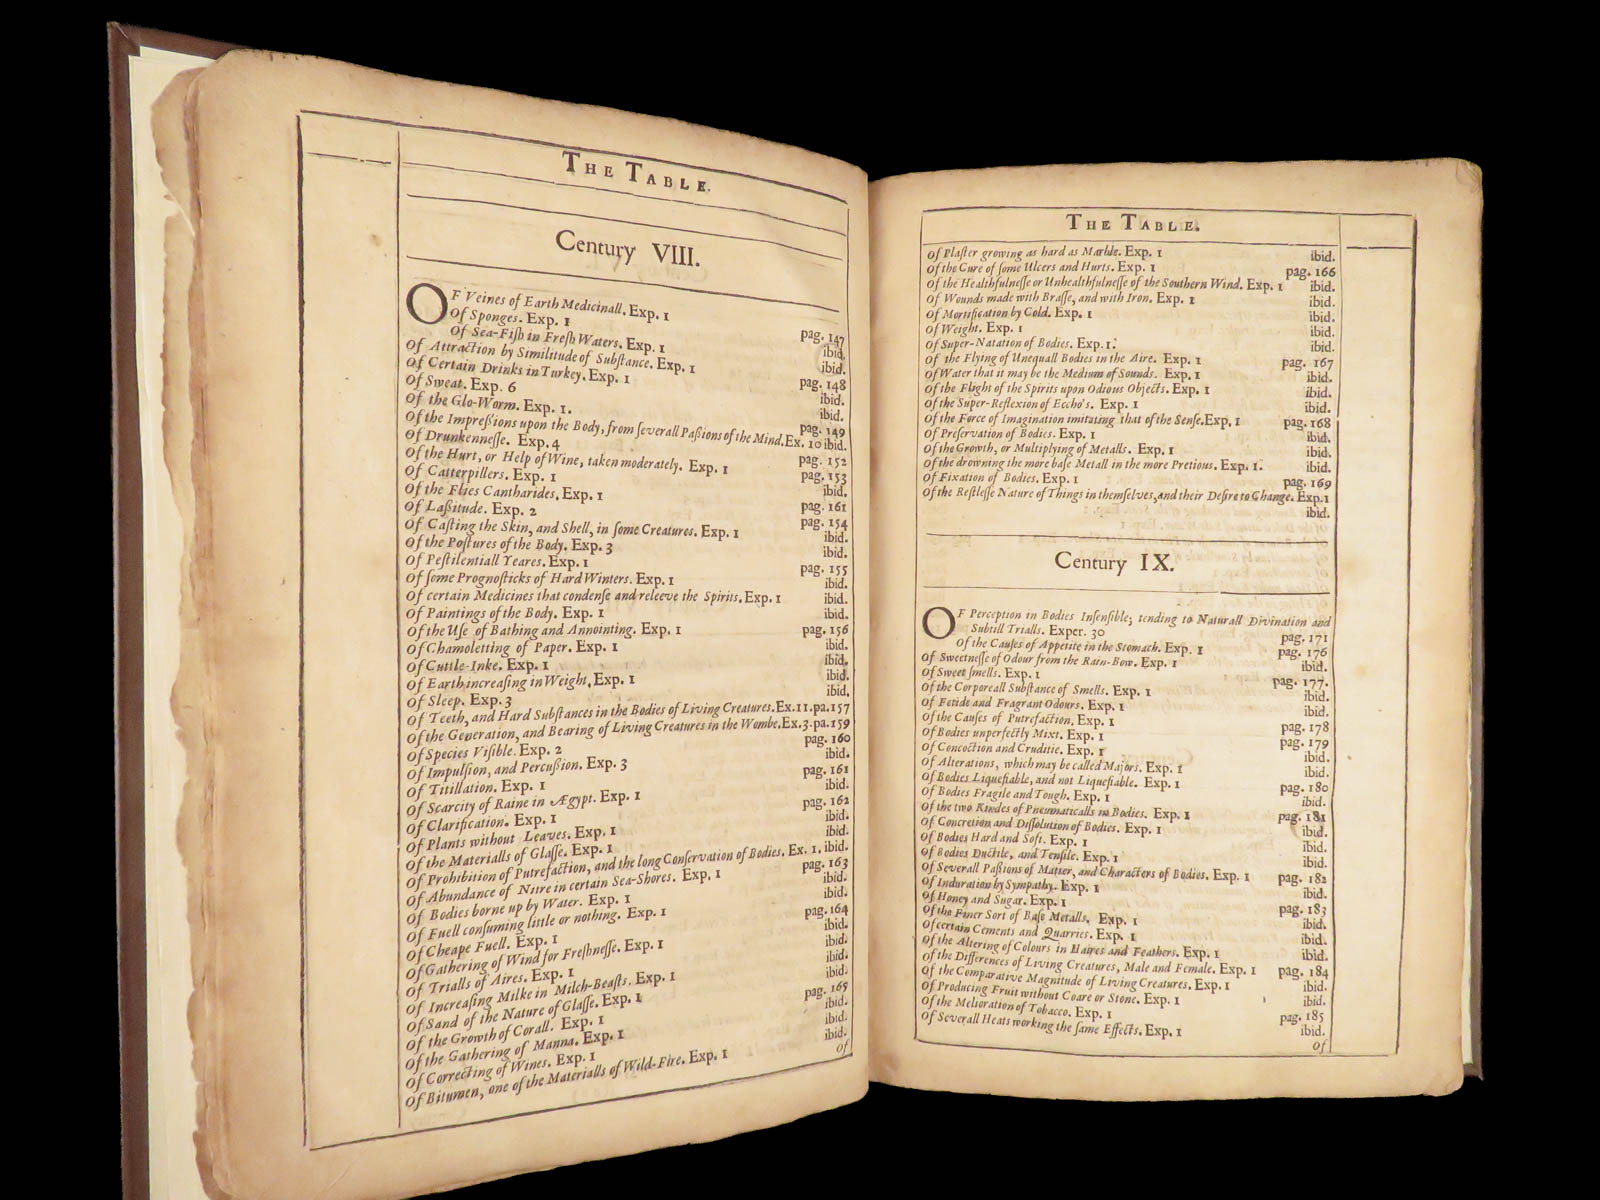 THE TABLE.
Century VIII.
OF Veines of Earth Medicinall. Exp. 1 pag. 147
Of Sponges. Exp. 1 ibid.
Of Sea-Fiſh in Freſh Waters. Exp. 1 ibid.
Of Attraction by Similitude of Subſtance. Exp. 1 pag. 148
Of Certain Drinks in Turkey. Exp. 1 ibid.
Of Sweat. Exp. 6 ibid.
Of the Glo-Worm. Exp. 1. pag. 149
Of the Impreſsions upon the Body, from ſeverall Paſsions of the Mind. Ex. 10 ibid.
Of Drunkenneſſe. Exp. 4 pag. 152
Of the Hurt, or Help of Wine, taken moderately. Exp. 1 pag. 153
Of Catterpillers. Exp. 1 ibid.
Of the Flies Cantharides. Exp. 1 pag. 161
Of Laſsitude. Exp. 2 pag. 154
Of Caſting the Skin, and Shell, in ſome Creatures. Exp. 1 ibid.
Of the Poſtures of the Body. Exp. 3 ibid.
Of Peſtilentiall Yeares. Exp. 1 pag. 155
Of ſome Prognoſticks of Hard Winters. Exp. 1 ibid.
Of certain Medicines that condenſe and releeve the Spirits. Exp. 1 ibid.
Of Paintings of the Body. Exp. 1 ibid.
Of the Uſe of Bathing and Annointing. Exp. 1 pag. 156
Of Chamoletting of Paper. Exp. 1 ibid.
Of Cuttle-Inke. Exp. 1 ibid.
Of Earth increaſing in Weight. Exp. 1 ibid.
Of Sleep. Exp. 3 ibid.
Of Teeth, and Hard Subſtances in the Bodies of Living Creatures. Ex. 11. pa. 157
Of the Generation, and Bearing of Living Creatures in the Wombe. Ex. 3. pa. 159
Of Species Viſible. Exp. 2 pag. 160
Of Impulſion, and Percuſsion. Exp. 3 ibid.
Of Titillation. Exp. 1 pag. 161
Of Scarcity of Raine in Ægypt. Exp. 1 ibid.
Of Clarification. Exp. 1 pag. 162
Of Plants without Leaves. Exp. 1 ibid.
Of the Materialls of Glaſſe. Exp. 1 ibid.
Of Prohibition of Putrefaction, and the long Conſervation of Bodies. Ex. 1. ibid.
Of Abundance of Nitre in certain Sea-Shores. Exp. 1 pag. 163
Of Bodies borne up by Water. Exp. 1 ibid.
Of Fuell conſuming little or nothing. Exp. 1 ibid.
Of Cheape Fuell. Exp. 1 pag. 164
Of Gathering of Wind for Freſhneſſe. Exp. 1 ibid.
Of Trialls of Aires. Exp. 1 ibid.
Of Increaſing Milke in Milch-Beaſts. Exp. 1 ibid.
Of Sand of the Nature of Glaſſe. Exp. 1 ibid.
Of the Growth of Corall. Exp. 1 pag. 165
Of the Gathering of Manna. Exp. 1 ibid.
Of Correcting of Wines. Exp. 1 ibid.
Of Bitumen, one of the Materialls of Wild-Fire. Exp. 1 ibid.
Of
THE TABLE.
Of Plaſter growing as hard as Marble. Exp. 1 ibid.
Of the Cure of ſome Ulcers and Hurts. Exp. 1 pag. 166
Of the Healthfulneſſe or Unhealthfulneſſe of the Southern Wind. Exp. 1 ibid.
Of Wounds made with Braſſe, and with Iron. Exp. 1 ibid.
Of Mortification by Cold. Exp. 1 ibid.
Of Weight. Exp. 1 ibid.
Of Super-Natation of Bodies. Exp. 1. ibid.
Of the Flying of Unequall Bodies in the Aire. Exp. 1 pag. 167
Of Water that it may be the Medium of Sounds. Exp. 1 ibid.
Of the Flight of the Spirits upon Odious Objects. Exp. 1 ibid.
Of the Super-Reflexion of Eccho's. Exp. 1 ibid.
Of the Force of Imagination imitating that of the Senſe. Exp. 1 pag. 168
Of Preſervation of Bodies. Exp. 1 ibid.
Of the Growth, or Multiplying of Metalls. Exp. 1 ibid.
Of the drowning the more baſe Metall in the more Pretious. Exp. 1. ibid.
Of Fixation of Bodies. Exp. 1 pag. 169
Of the Reſtleſſe Nature of Things in themſelves, and their Deſire to Change. Exp. 1
ibid.
Century IX.
OF Perception in Bodies Inſenſible; tending to Naturall Divination and
Subtill Trialls. Exper. 30 pag. 171
Of the Cauſes of Appetite in the Stomach. Exp. 1 pag. 176
Of Sweetneſſe of Odour from the Rain-Bow. Exp. 1 ibid.
Of Sweet ſmells. Exp. 1 pag. 177.
Of the Corporeall Subſtance of Smells. Exp. 1 ibid.
Of Fetide and Fragrant Odours. Exp. 1 ibid.
Of the Cauſes of Putrefaction. Exp. 1 pag. 178
Of Bodies unperfectly Mixt. Exp. 1 pag. 179
Of Concoction and Cruditie. Exp. 1 ibid.
Of Alterations, which may be called Majors. Exp. 1 ibid.
Of Bodies Liquefiable, and not Liquefiable. Exp. 1 pag. 180
Of Bodies Fragile and Tough. Exp. 1 ibid.
Of the two Kindes of Pneumaticalls in Bodies. Exp. 1 pag. 181
Of Concretion and Diſſolution of Bodies. Exp. 1 ibid.
Of Bodies Hard and Soft. Exp. 1 ibid.
Of Bodies Ductile, and Tenſile. Exp. 1 ibid.
Of Severall Paſsions of Matter, and Characters of Bodies. Exp. 1 pag. 182
Of Induration by Sympathy. Exp. 1 ibid.
Of Honey and Sugar. Exp. 1 pag. 183
Of the Finer Sort of Baſe Metalls. Exp. 1 ibid.
Of certain Cements and Quarries. Exp. 1 ibid.
Of the Altering of Colours in Haires and Feathers. Exp. 1 ibid.
Of the Differences of Living Creatures, Male and Female. Exp. 1 pag. 184
Of the Comparative Magnitude of Living Creatures. Exp. 1 ibid.
Of Producing Fruit without Coare or Stone. Exp. 1 ibid.
Of the Melioration of Tobacco. Exp. 1 pag. 185
Of Severall Heats working the ſame Effects. Exp. 1 ibid.
Of